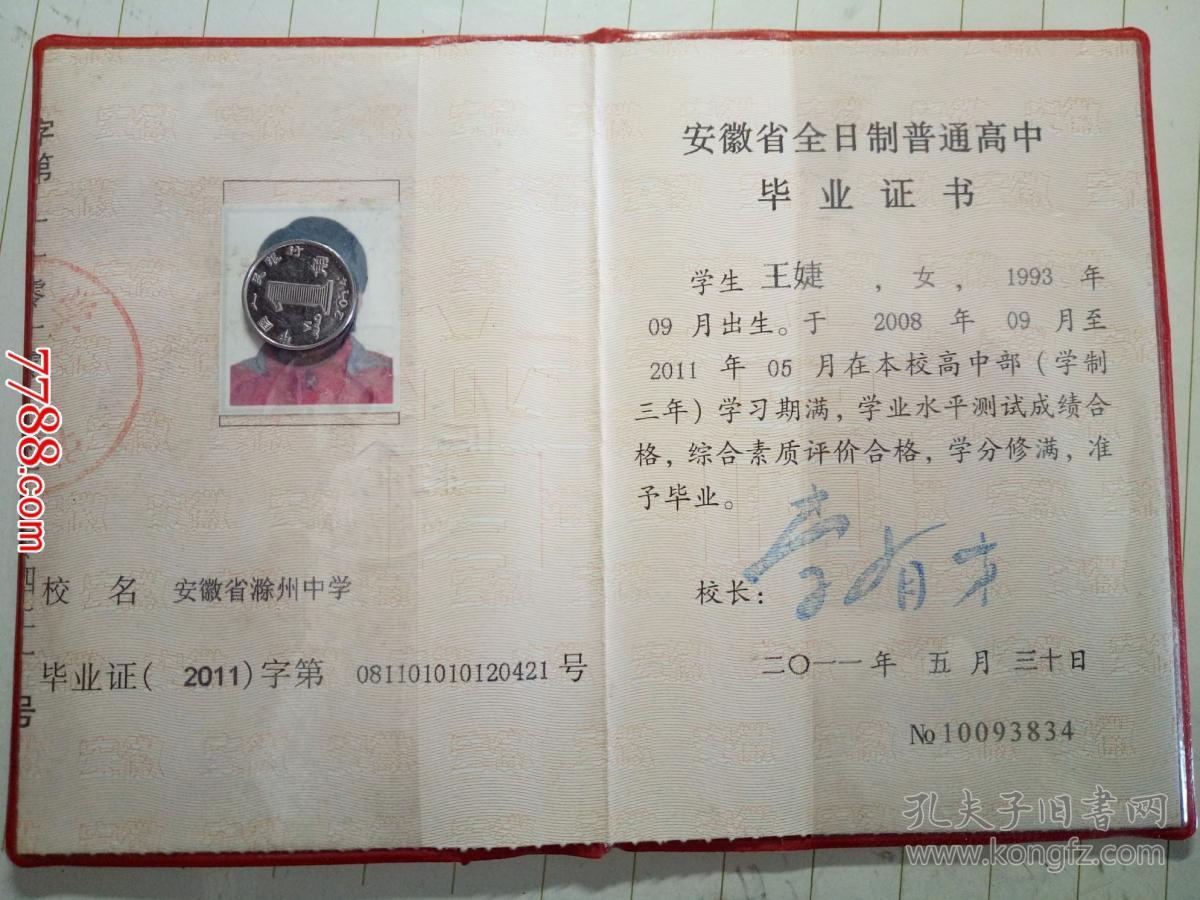 安徽省全日制普通高中
毕业证书
学生 王婕 ，女，1993 年
09 月出生。于 2008 年 09 月至
2011 年 05 月在本校高中部(学制
三年)学习期满，学业水平测试成绩合
格，综合素质评价合格，学分修满，准
予毕业。
校长：
二〇一一年 五月 三十日
№10093834
校 名 安徽省滁州中学
毕业证( 2011)字第 081101010120421 号
字第
号
中国人民银行
1
角
7788.com
孔夫子旧书网
www.kongfz.com